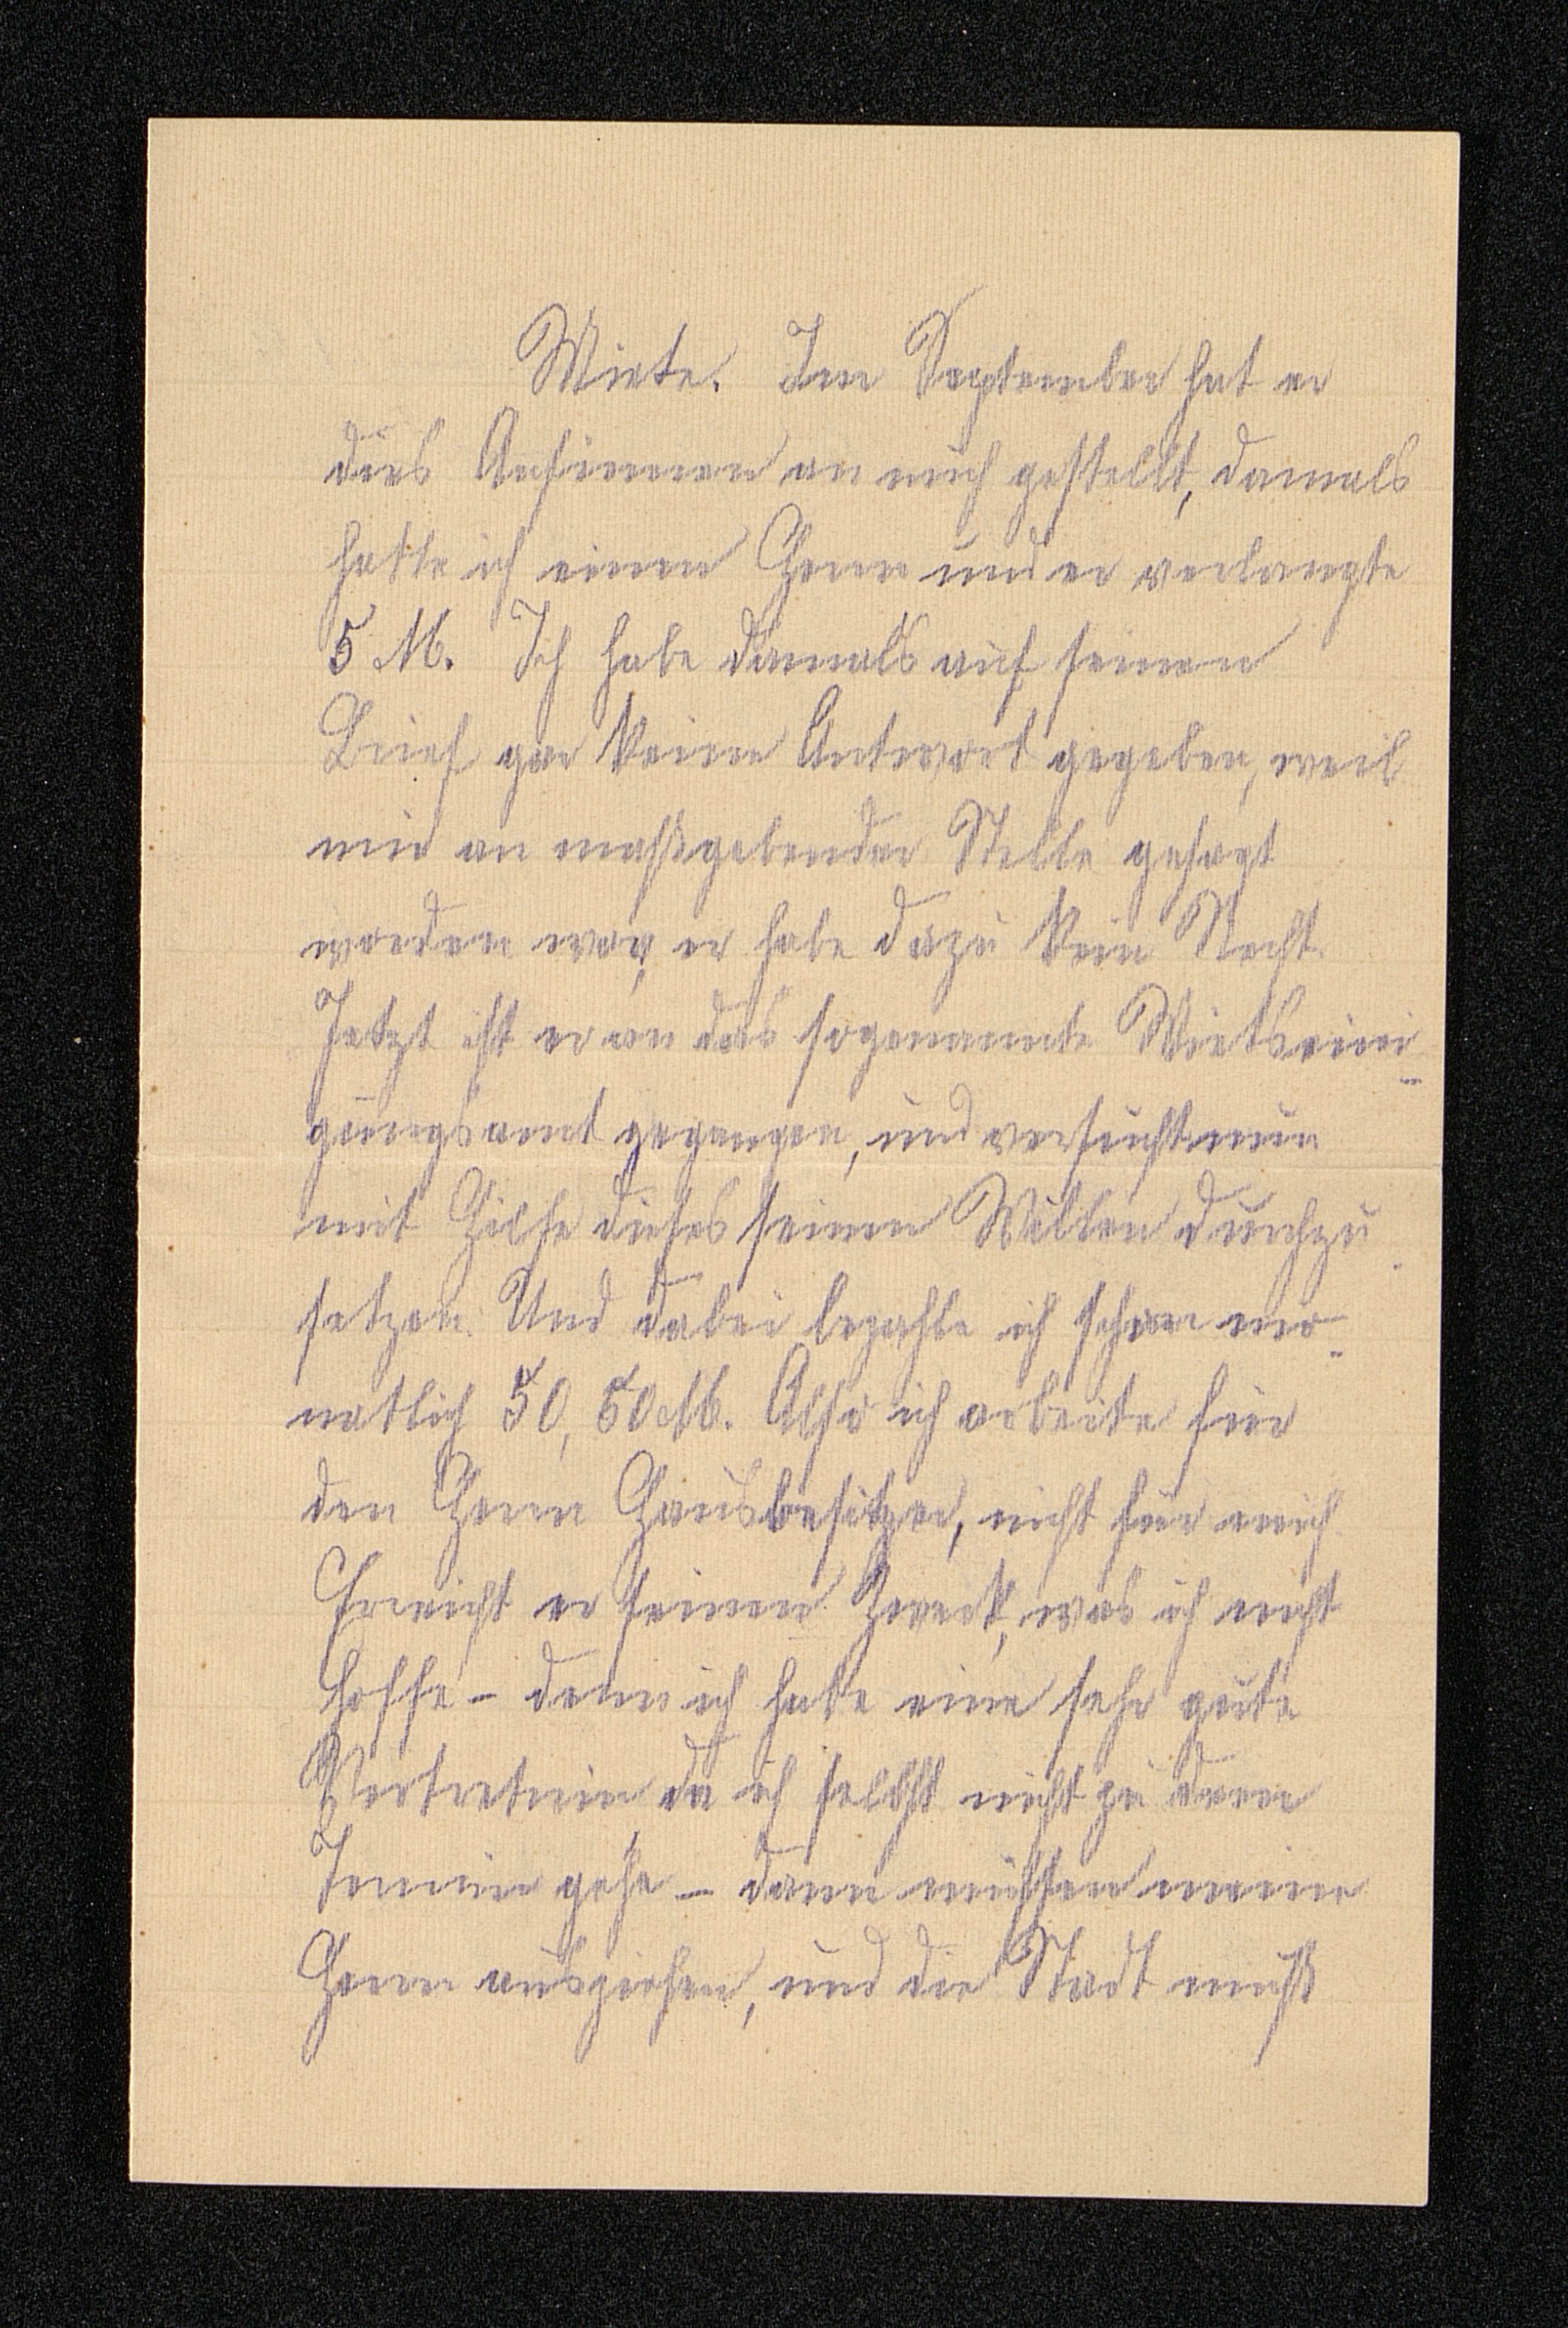 Miete. Im September hat er
dies Ansinnen an mich gestellt, damals
hatte ich einen Herrn und er verlangte
5 M. Ich habe damals auf seinen
Brief gar keine Antwort gegeben, weil
mir an maßgebender Stelle gesagt
worden war, er habe dazu kein Recht.
Jetzt ist er an das sogenannte Mietseini-
gungsamt gegangen, und versucht nun
mit Hilfe dieses seinen Willen durchzu-
setzen. Und dabei bezahle ich schon mo-
natlich 50,50 M. Also ich arbeite für
den Herrn Hausbesitzer, nicht für mich
Erreicht er seinen Zweck, was ich nicht
hoffe – denn ich habe eine sehr gute
Vertreterin da ich selbst nicht zu dem
Termin gehe – dann müssen meine
Herrn ausziehen, und die Stadt muß